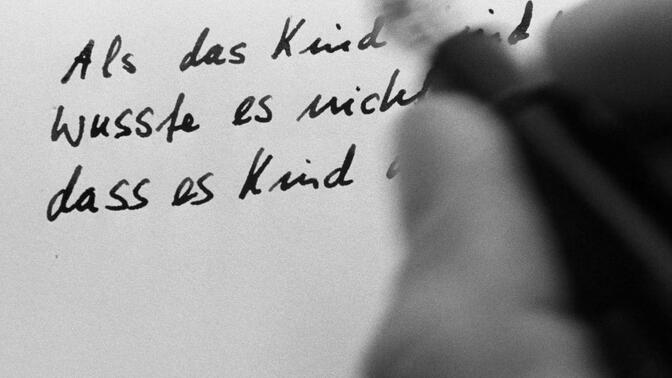 Als das Kind
wusste es nicht
dass es Kind